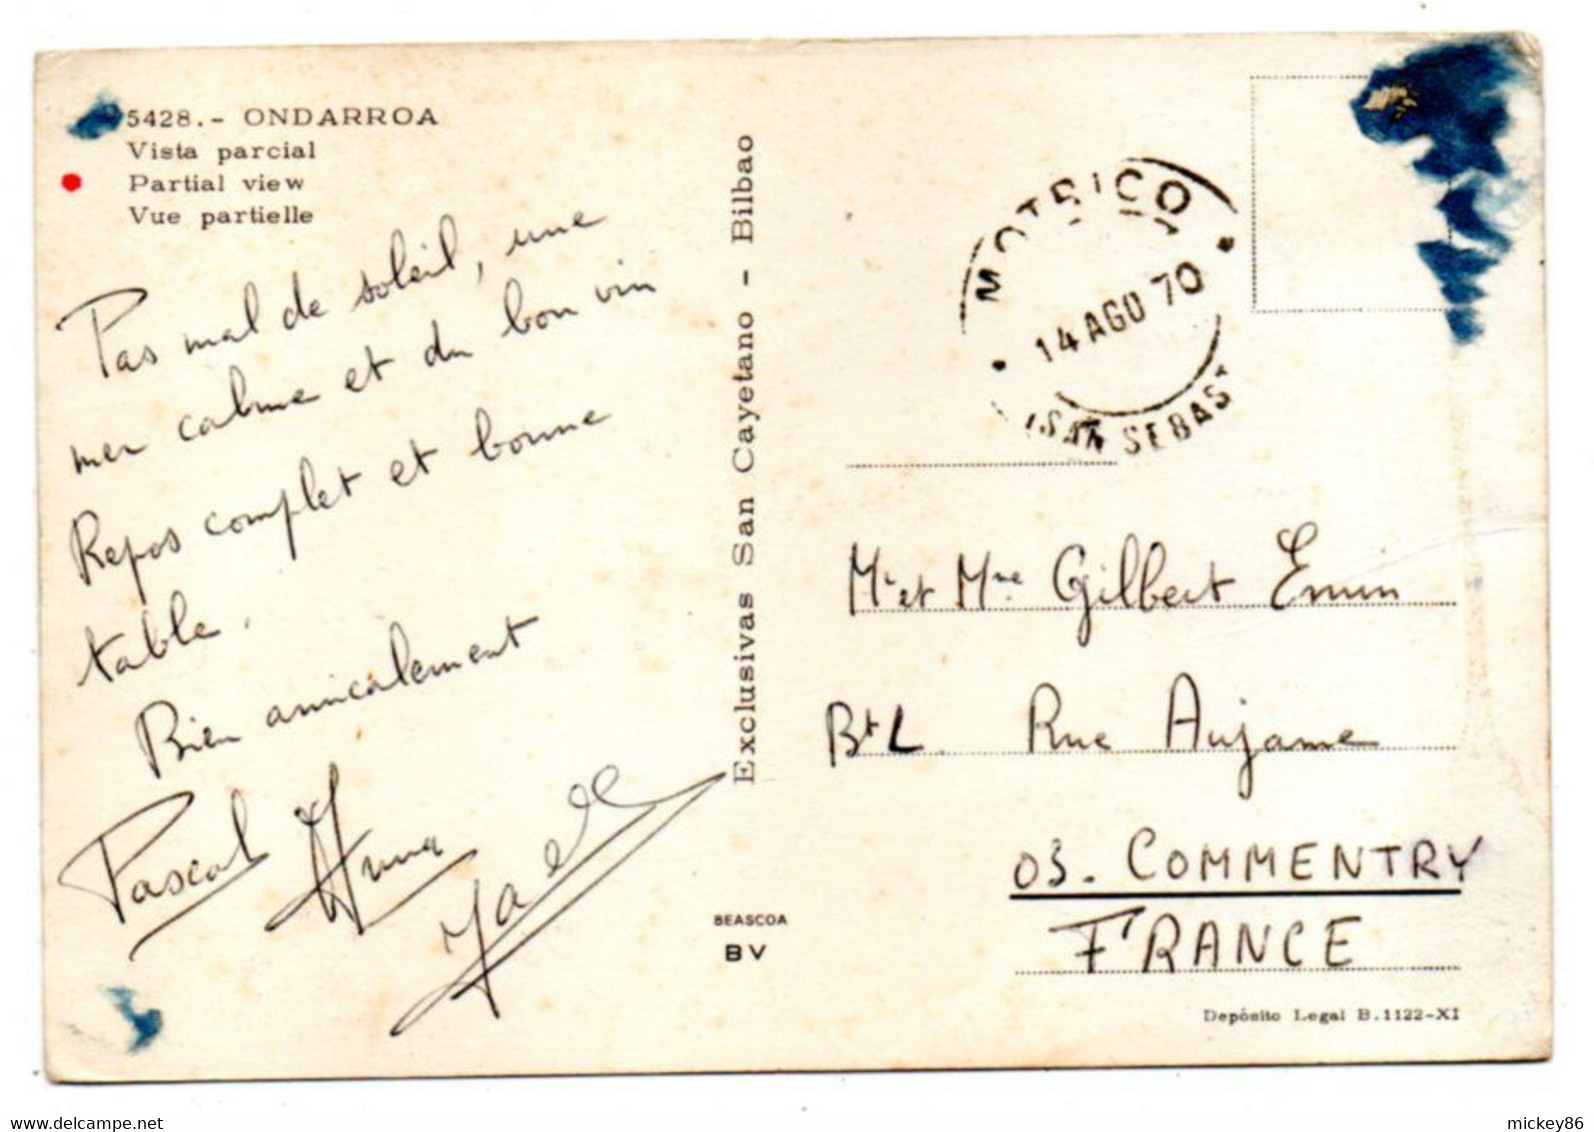 5428.- ONDARROA
Vista parcial
Partial view
Vue partielle
Pas mal de soleil, une
mer calme et du bon vin
Repos complet et bonne
table.
Bien amicalement
Pascal Anna
Exclusivas San Cayetano - Bilbao
BEASCOA
BV
MOTRICO
14 AGO 70
(SAN SEBAST
Mr et Mme Gilbert
Bt L Rue Aujame
03. COMMENTRY
FRANCE
Depósito Legal B.1122-XI
mickey86